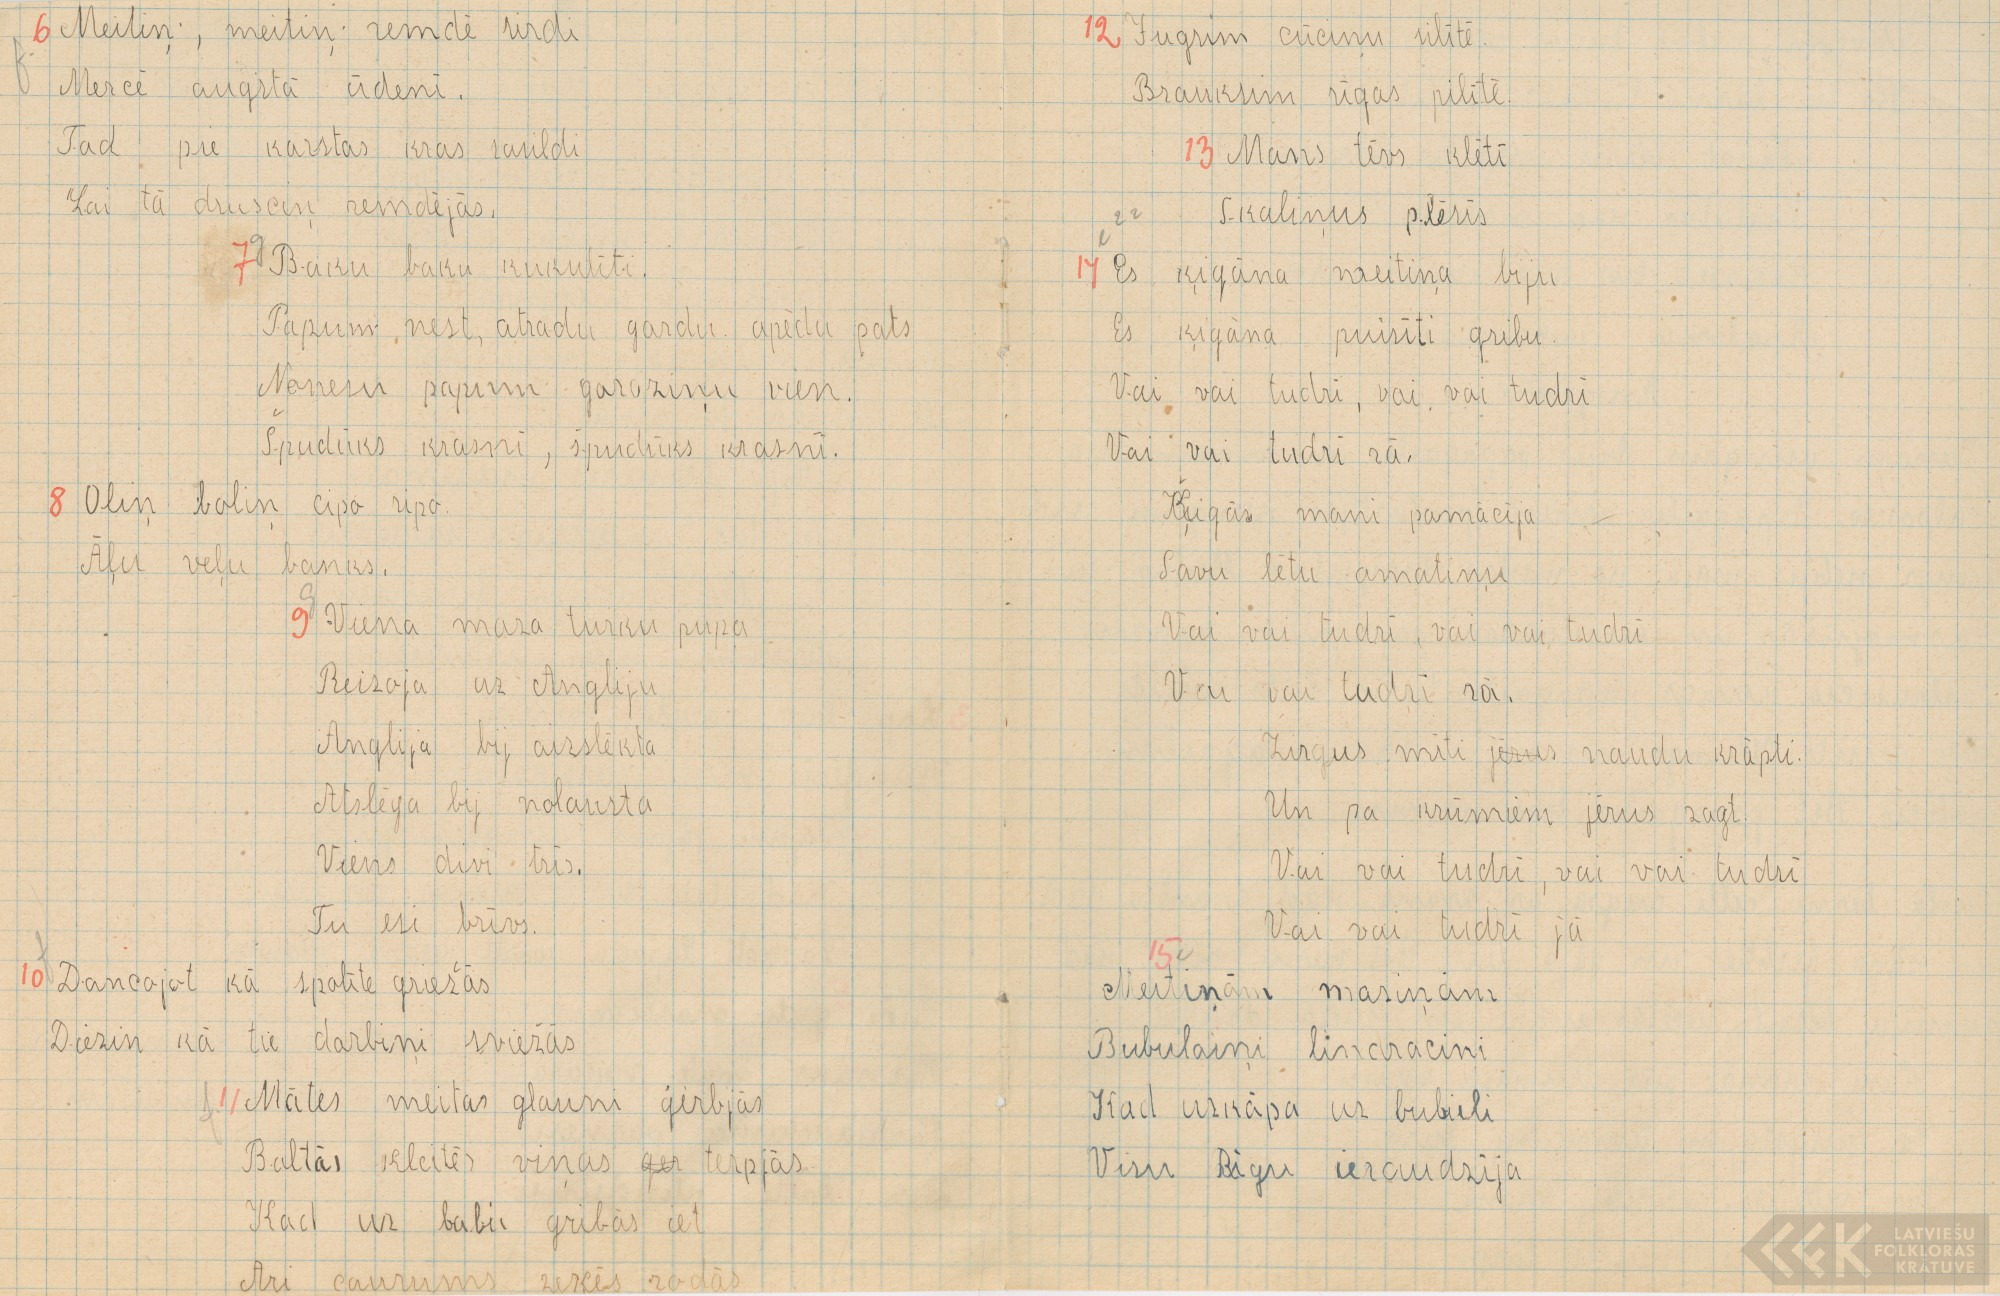 6 Meitiņ, meitiņ remdē sirdi
Mercē augstā ūdenī.
Tad pie karstas krās sasildi
Lai tā drusciņ remdējās.
7 Baku baku kukulīti.
Papum nest, atradu gardu apēdu pats
Nonesu papum garoziņu vien.
Špudūks krasnī, špudūks krasnī.
8 Oliņ boliņ cipo ripo.
Āļu veļu banks.
9 Viena maza turku pupa
Reizoja uz Angliju
Anglija bij aizslēkta
Atslēga bij nolauzta
Viens divi trīs.
Tu esi brīvs.
10 Dancojot kā spolīte griežās
Diezin kā tie darbiņi sviežās
11 Mātes meitas glauni ģērbjās
Baltās kleitēs viņas ger terpjās
Kad uz balli gribās iet
Ari caurums zeķēs rodās
12 Jugsim cūciņu silītē.
Brauksim rīgas pilītē.
13 Mans tēvs klētī
Skaliņus plēsīs
14 Es ķigāna meitiņa biju
Es ķigāna puisīti gribu.
Vai vai tudrī, vai vai tudrī
Vai vai tudrī rā.
Ķigās mani pamācīja
Savu lētu amatiņu
Vai vai tudrī, vai vai tudrī
Vai vai tudrī rā.
Zirgus mīti jērus naudu krāpti.
Un pa krūmiem jērus zagt
Vai vai tudrī, vai vai tudrī
Vai vai tudrī jā
15 Meitiņām masiņām
Bubulaiņi lindraciņi
Kad uzkāpa uz bubieli
Visu Rīgu ieraudzīja
LATVIEŠU
FOLKLORAS
KRĀTUVE